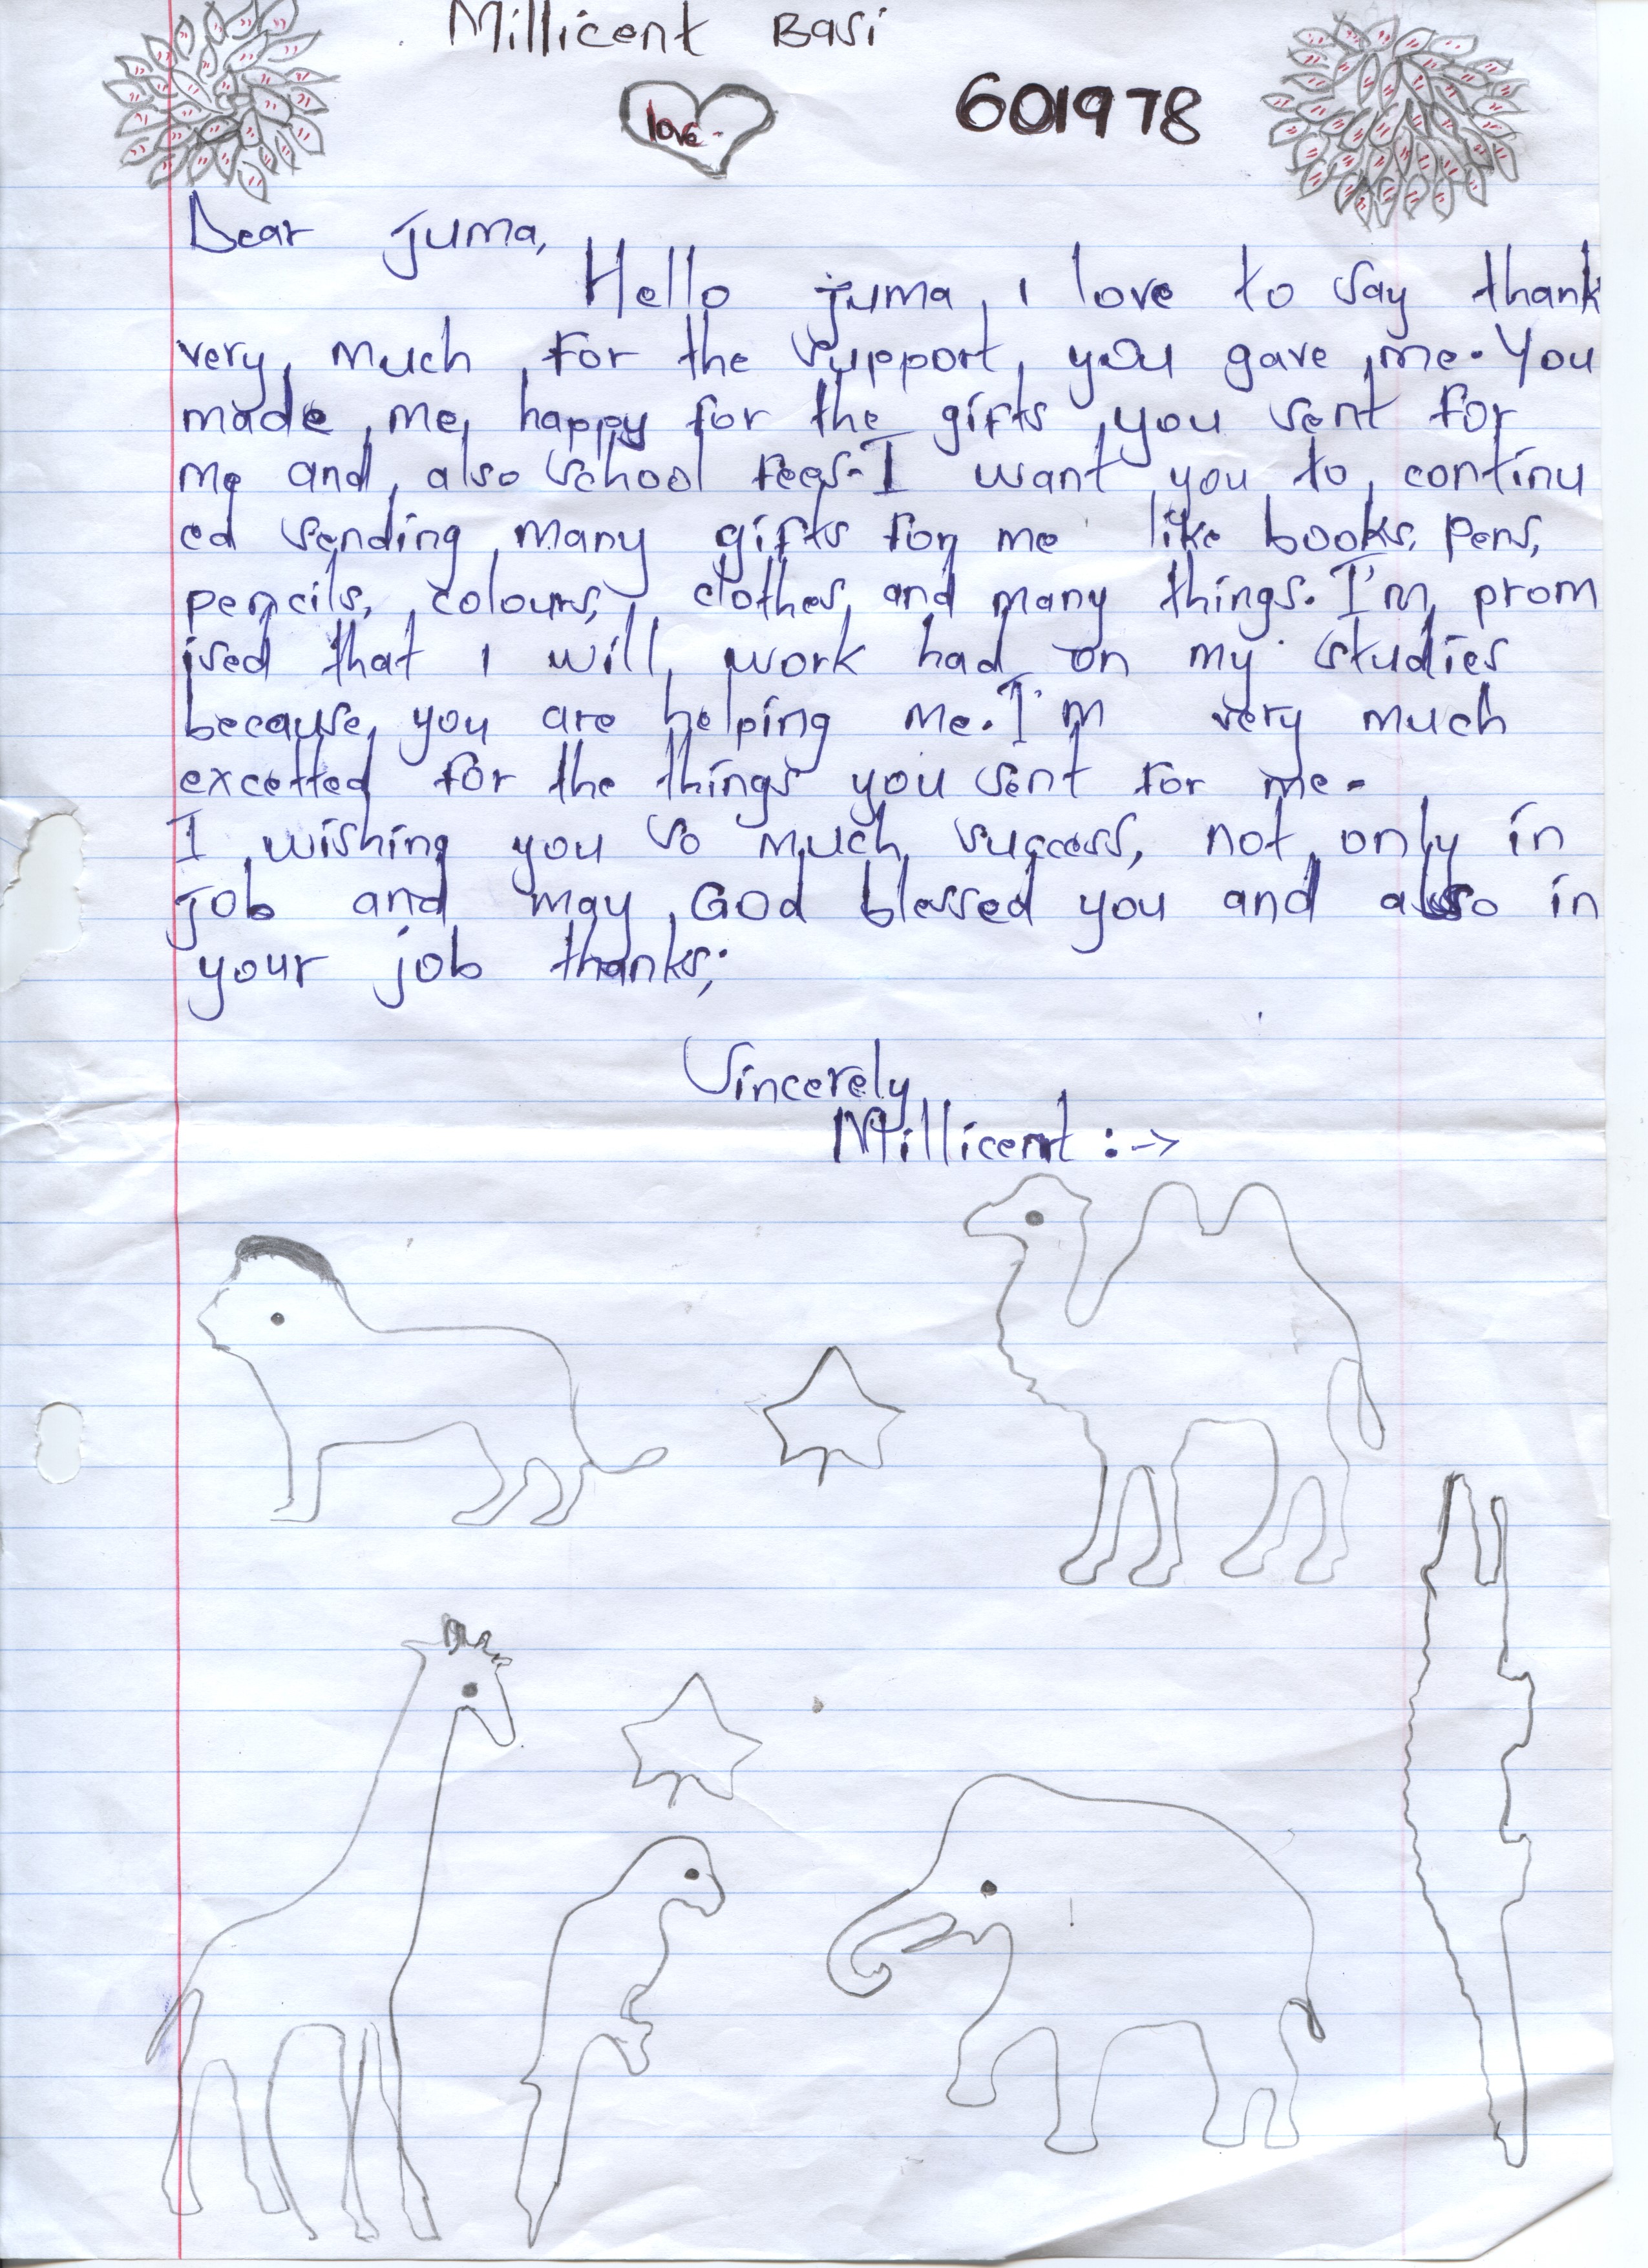 Millicent Basi
love
601978
Dear Juma,
Hello Juma, I love to say thank
very much for the support you gave me. You
made me happy for the gifts you sent for
me and also school fees. I want you to continu
ed sending many gifts for me like books, pens,
pencils, colours, clothes and many things. I'm prom
ised that I will work had on my studies
because you are helping me. I'm very much
excetted for the things you sent for me.
I wishing you so much success, not only in
job and may God blessed you and also in
your job thanks;
Sincerely
Millicent :->